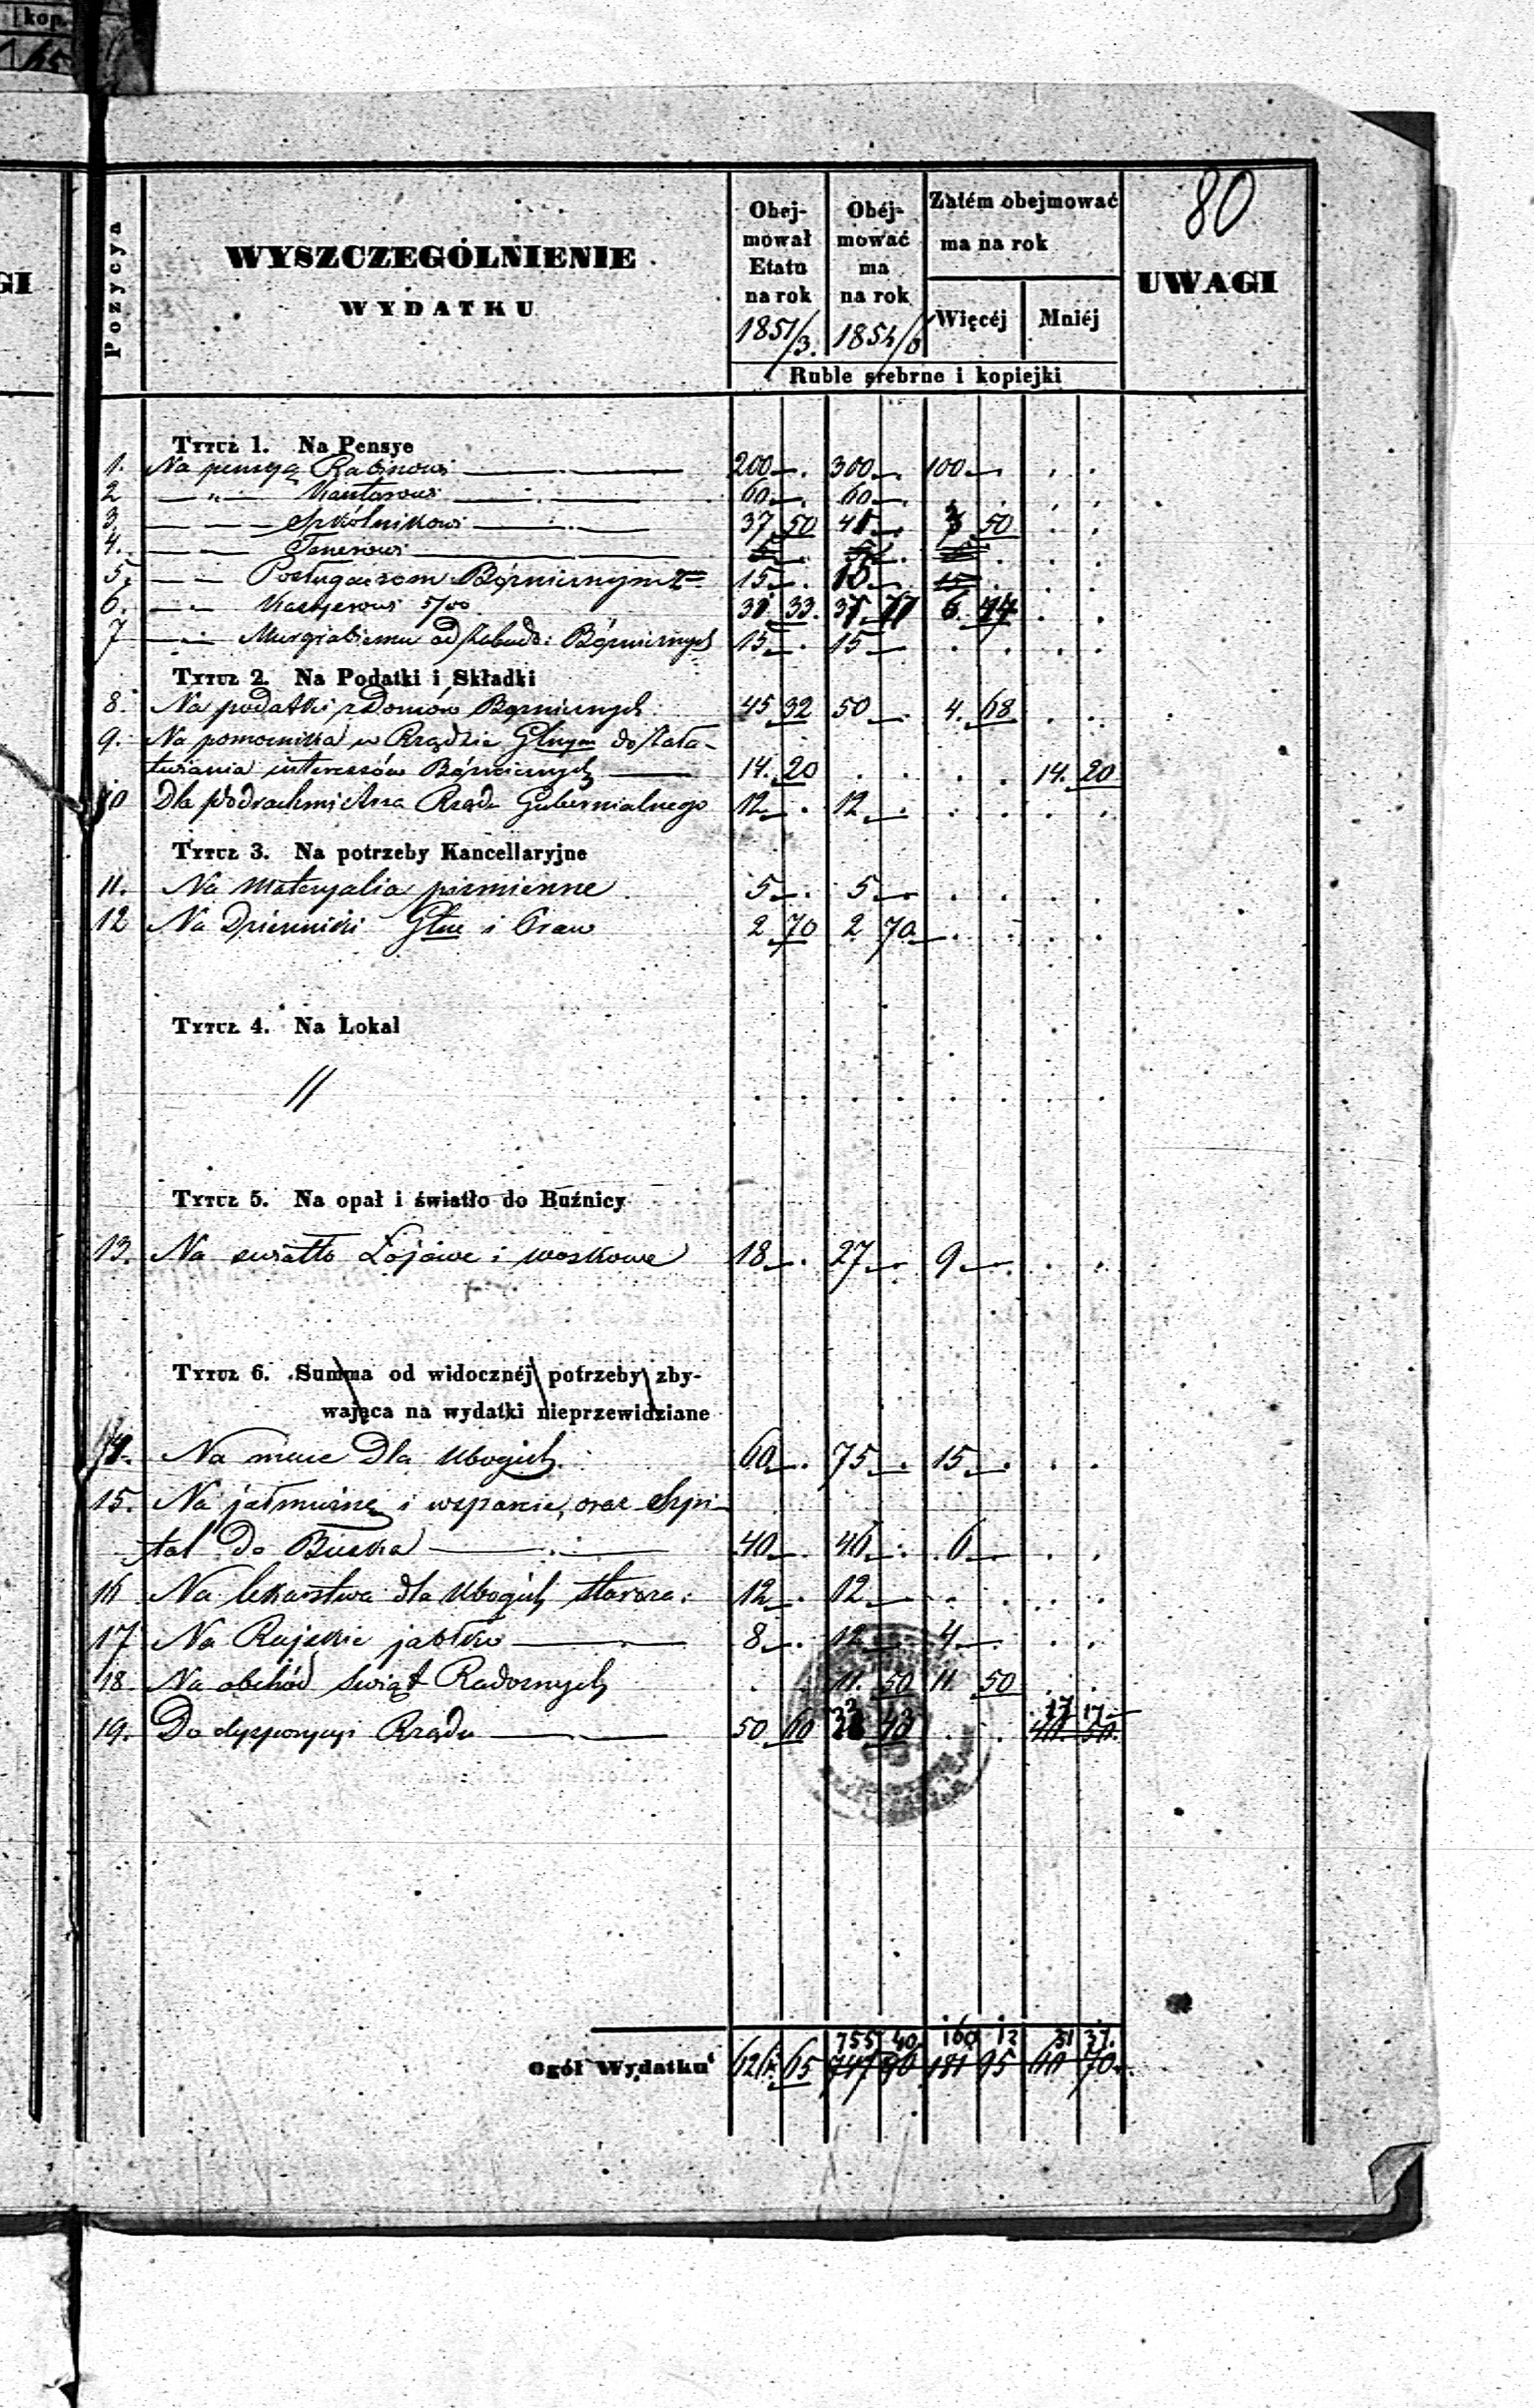 kop.
GI
80
Pozycya
WYSZCZEGÓLNIENIE
WYDATKU
Obej-
mował
Etatu
na rok
1851/3.
Obéj-
mować
ma
na rok
1854/6
Zatém obejmować
ma na rok
Więcéj
Mniéj
UWAGI
Ruble srebrne i kopiejki
Tytuł 1. Na Pensye
1. Na pensyą Rabinowi 200 — . 300 — 100 — . . .
2 — „ — Kantorowi 60 — . 60 — . . . . .
3. — — — Szkólnikowi 37. 50 41 — . 3 50 . .
4. — —
5. — — Posługaczom Bóżnicznym 2 15 — . 15 —
6. — „ — Kassyerowi 5/00 31. 33. 37. 77 6. 44 . .
7 — „ — Bóżnicznych 15 — . 15 — . . . .
Tytuł 2. Na Podatki i Składki
8. Na podatki z Domów Bóżnicznych 45 32 50 — . 4. 68 . .
9. Na pomocnika w Rządzie Głnym do Zała-
twiania interessów Bóżnicznych — 14. 20 . . . . 14. 20
10 Dla Rządu Gubernialnego 12 — . 12 — . . . . .
Tytuł 3. Na potrzeby Kancellaryjne
11. Na Materyalia piśmienne 5 — . 5 — . . . .
12 Na Dzienniki Głne i Praw 2 70 2 70 — . . . .
Tytuł 4. Na Lokal
//
Tytuł 5. Na opał i światło do Buźnicy
13. Na swiatło Łojowe i woskowe 18 — . 27 — . 9 — . . .
Tytuł 6. Summa od widocznéj potrzeby zby-
wająca na wydatki nieprzewidziane
14. Na mace Dla Ubogich. 60 — . 75 — . 15 — . . .
15. Na jałmużnę i wsparcie, oraz Szpi-
tal do Buska — 40 — . 46 — . 6 — . .
16 Na lekarstwa dla Ubogich 12 — . 12 — . . . .
17 Na Rajskie jabłko — 8 — . 12 — . 4 — . . .
18. Na obchód Swiąt . . 11. 50 11 50 . .
19. Do dyspozycyi Rządu — 50 60 33 43 . . 17 17
755 40 160 12 31 37.
Ogół Wydatku 65 747 86 181 95 70